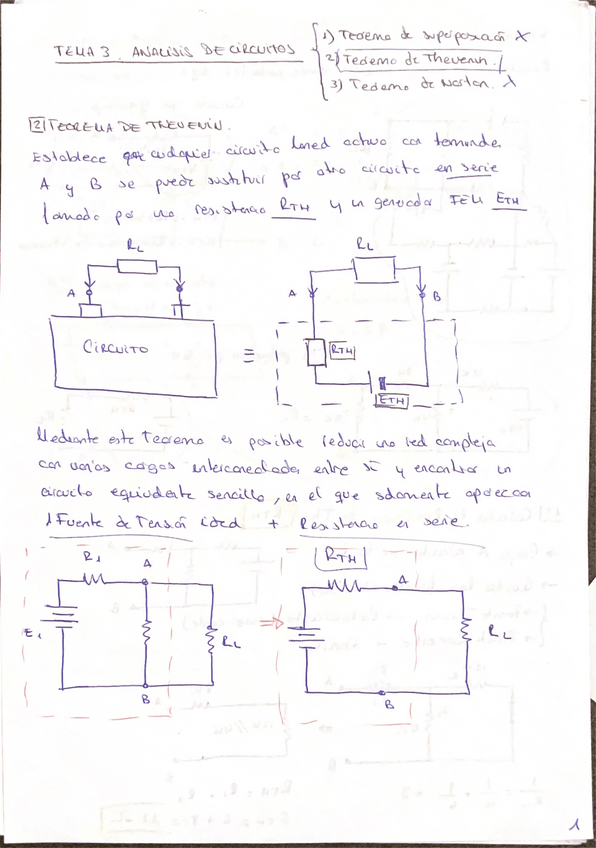 TEMA 3. ANALISIS DE CIRCUITOS
1) Teorema de superposición X
2) Teorema de Thevenin.
3) Teorema de Norton.
2) TEOREMA DE THEVENIN.
Establece que cualquier circuito lineal activo con terminales
A y B se puede sustituir por otro circuito en serie
formado por una resistencia RTH y un generador FEM ETH
RL
A
CIRCUITO
≡
RL
A
B
RTH
ETH
Mediante este Teorema es posible reducir una red compleja
con varias cargas interconectadas entre sí y encontrar un
circuito equivalente sencillo, en el que solamente aparezca
1 Fuente de Tensión ideal + Resistencia en serie.
R1
A
E1
RL
B
⇒
RTH
A
RL
B
1